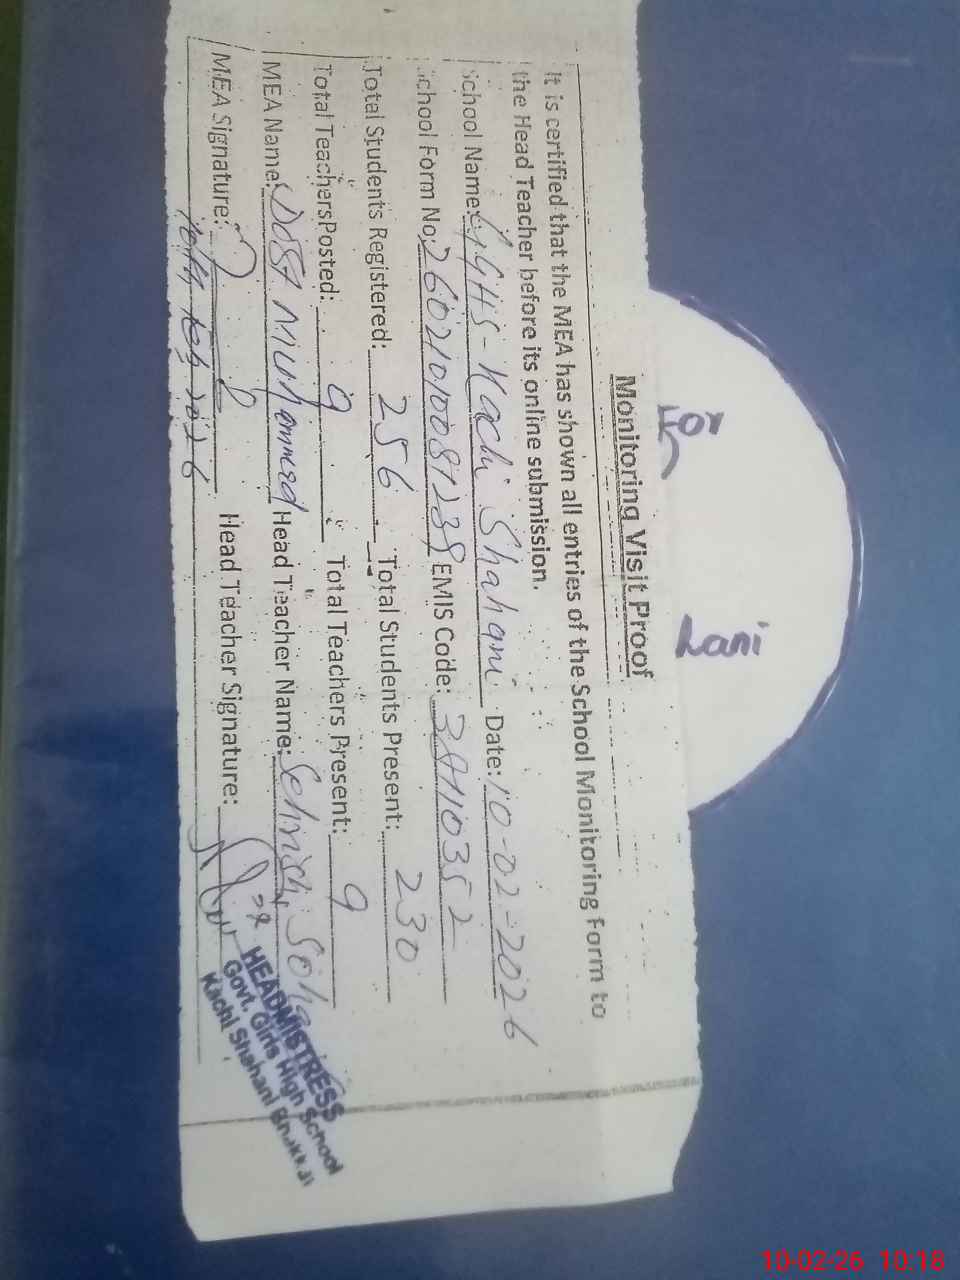 Monitoring Visit Proof
It is certified that the MEA has shown all entries of the School Monitoring Form to
the Head Teacher before its online submission.
School Name: GGHS - Kachi Shahani Date: 10-02-2026
School Form No: EMIS Code:
Total Students Registered: 256 Total Students Present: 230
Total Teachers Posted: 9 Total Teachers Present: 9
MEA Name: Dost Muhammed Head Teacher Name:
MEA Signature: Head Teacher Signature:
2026
HEADMISTRESS
Govt. Girls High School
Kachi Shahani Bhakkar
For
Lani
10-02-26 10:18